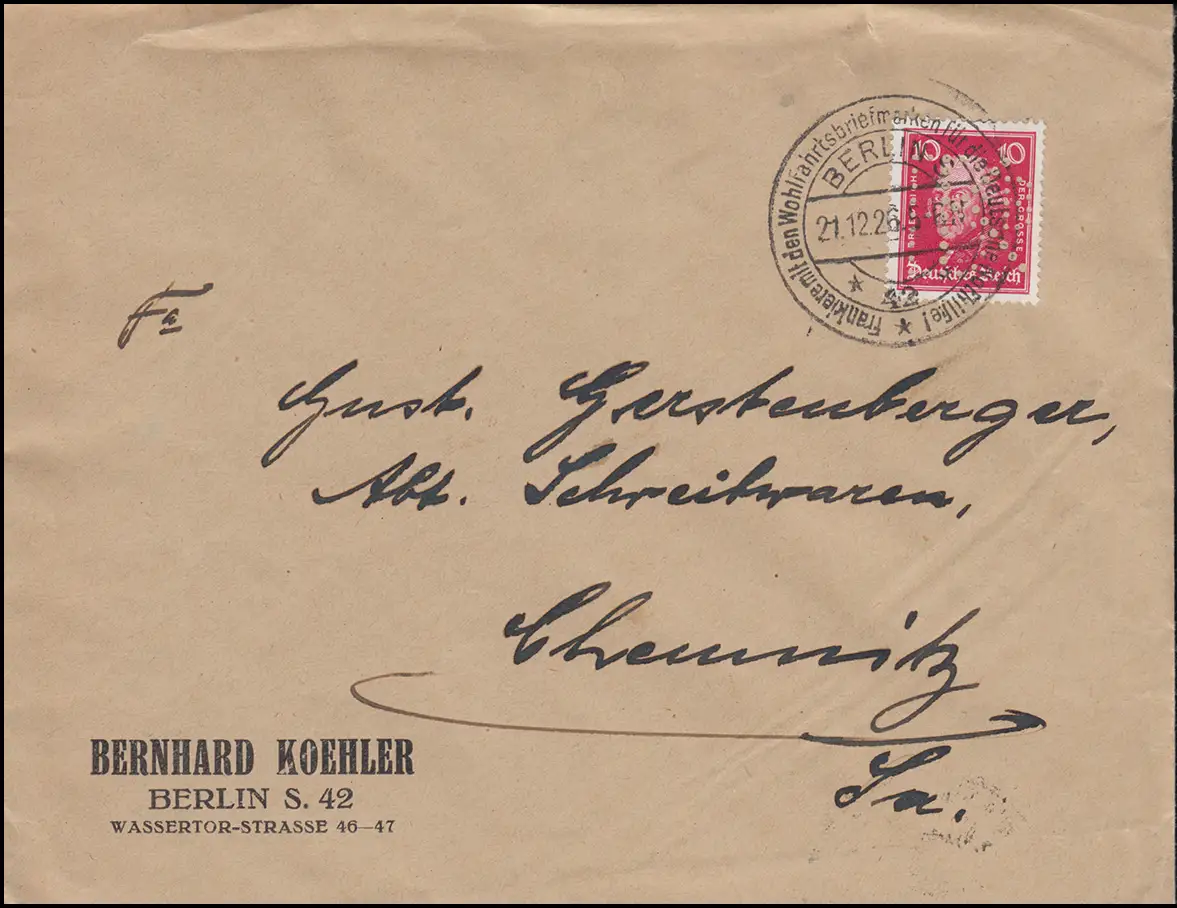 Frankiere mit den Wohlfahrtsbriefmarken für die Deutsche Nothilfe!
BERLIN S
21.12.26.
42
10 10
DER GROSSE
Deutsches Reich
Fa
Gust. Gerstenberger,
Abt. Schreibwaren,
Chemnitz
Sa.
BERNHARD KOEHLER
BERLIN S. 42
WASSERTOR-STRASSE 46–47